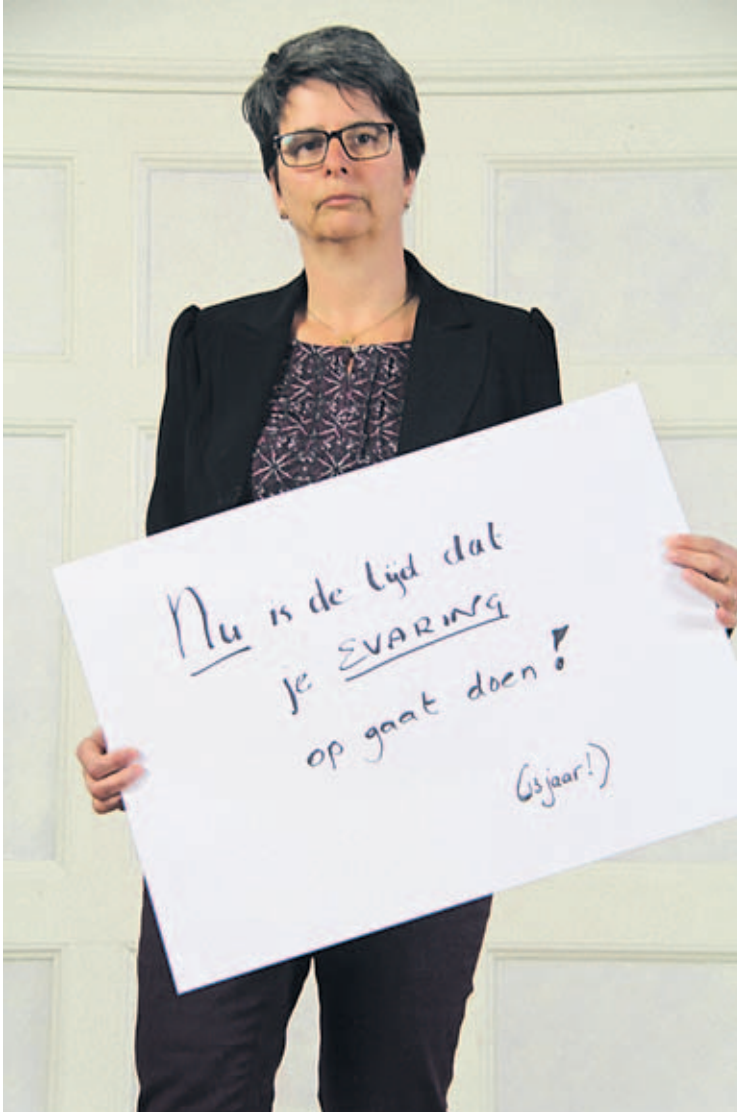 Nu is de tijd dat
je EVARING
op gaat doen!
(is jaar!)